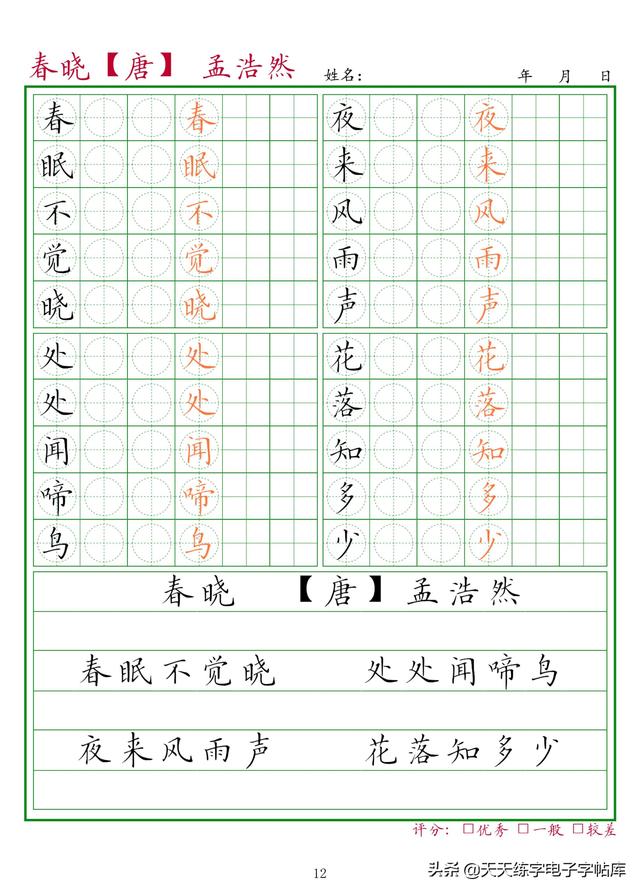 春晓【唐】 孟浩然 姓名： 年 月 日
春 春 夜 夜
眠 眠 来 来
不 不 风 风
觉 觉 雨 雨
晓 晓 声 声
处 处 花 花
处 处 落 落
闻 闻 知 知
啼 啼 多 多
鸟 鸟 少 少
春晓 【唐】孟浩然
春眠不觉晓 处处闻啼鸟
夜来风雨声 花落知多少
评分：□优秀 □一般 □较差
12
头条 @天天练字电子字帖库